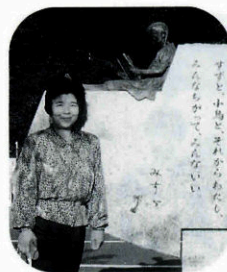 すずと、小鳥と、それからわたし、
みんなちがって、みんないい
みすゞ